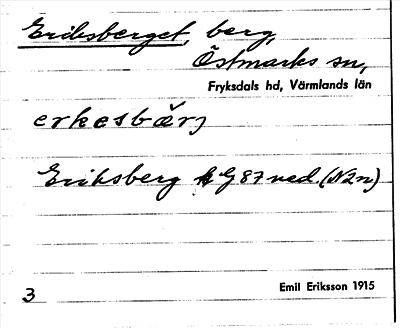 Eriksberget, berg,
Östmarks sn,
Fryksdals hd, Värmlands län
erkesbärj
Eriksberg G 87 ned. (N2n)
Emil Eriksson 1915
3